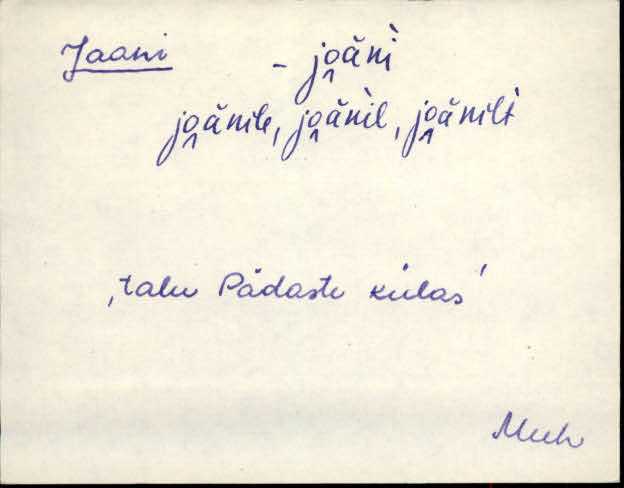 Jaani - jo̭äǹi
jo̭änile, jo̭äǹil, jo̭änilt
‚talu Pädaste külas‘
Muh